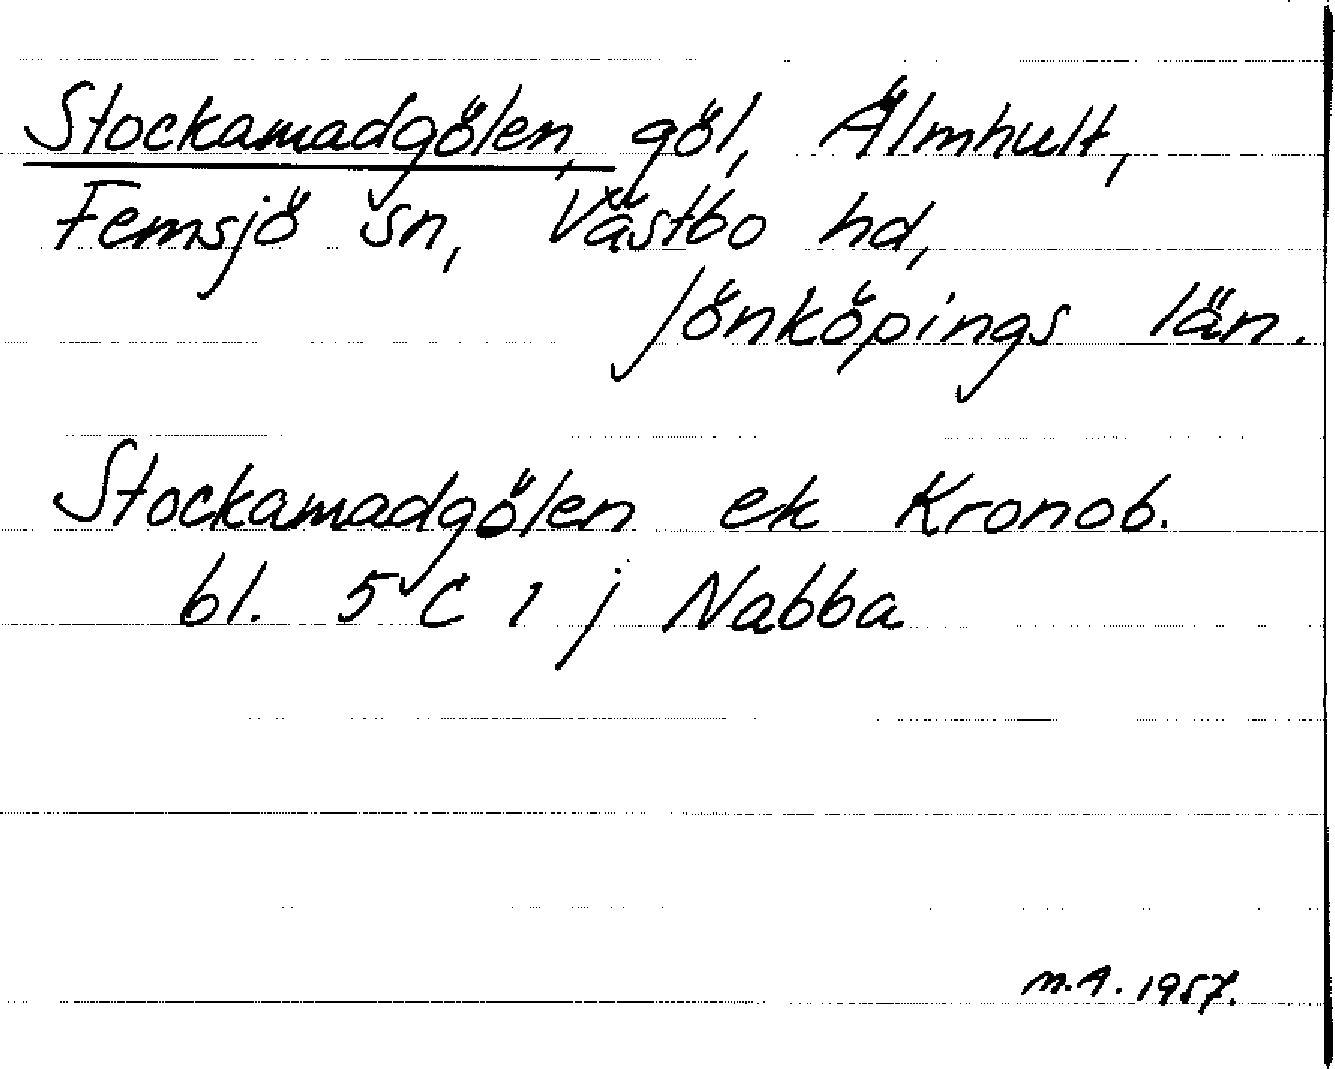 Stockamadgölen, göl, Älmhult,
Femsjö sn, Västbo hd,
Jönköpings län.
Stockamadgölen ek Kronob.
bl. 5 C 1 j Nabba
M.A. 1957.